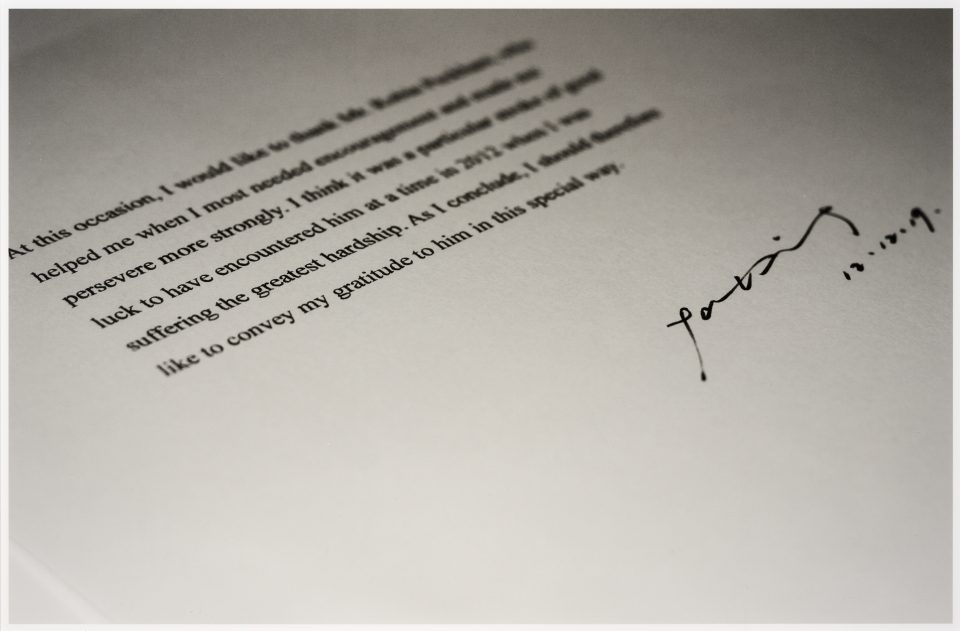 At this occasion, I would like to thank Mr.
helped me when I most needed encouragement and made me
persevere more strongly. I think it was a particular stroke of good
luck to have encountered him at a time in 2012 when I was
suffering the greatest hardship. As I conclude, I should therefore
like to convey my gratitude to him in this special way.